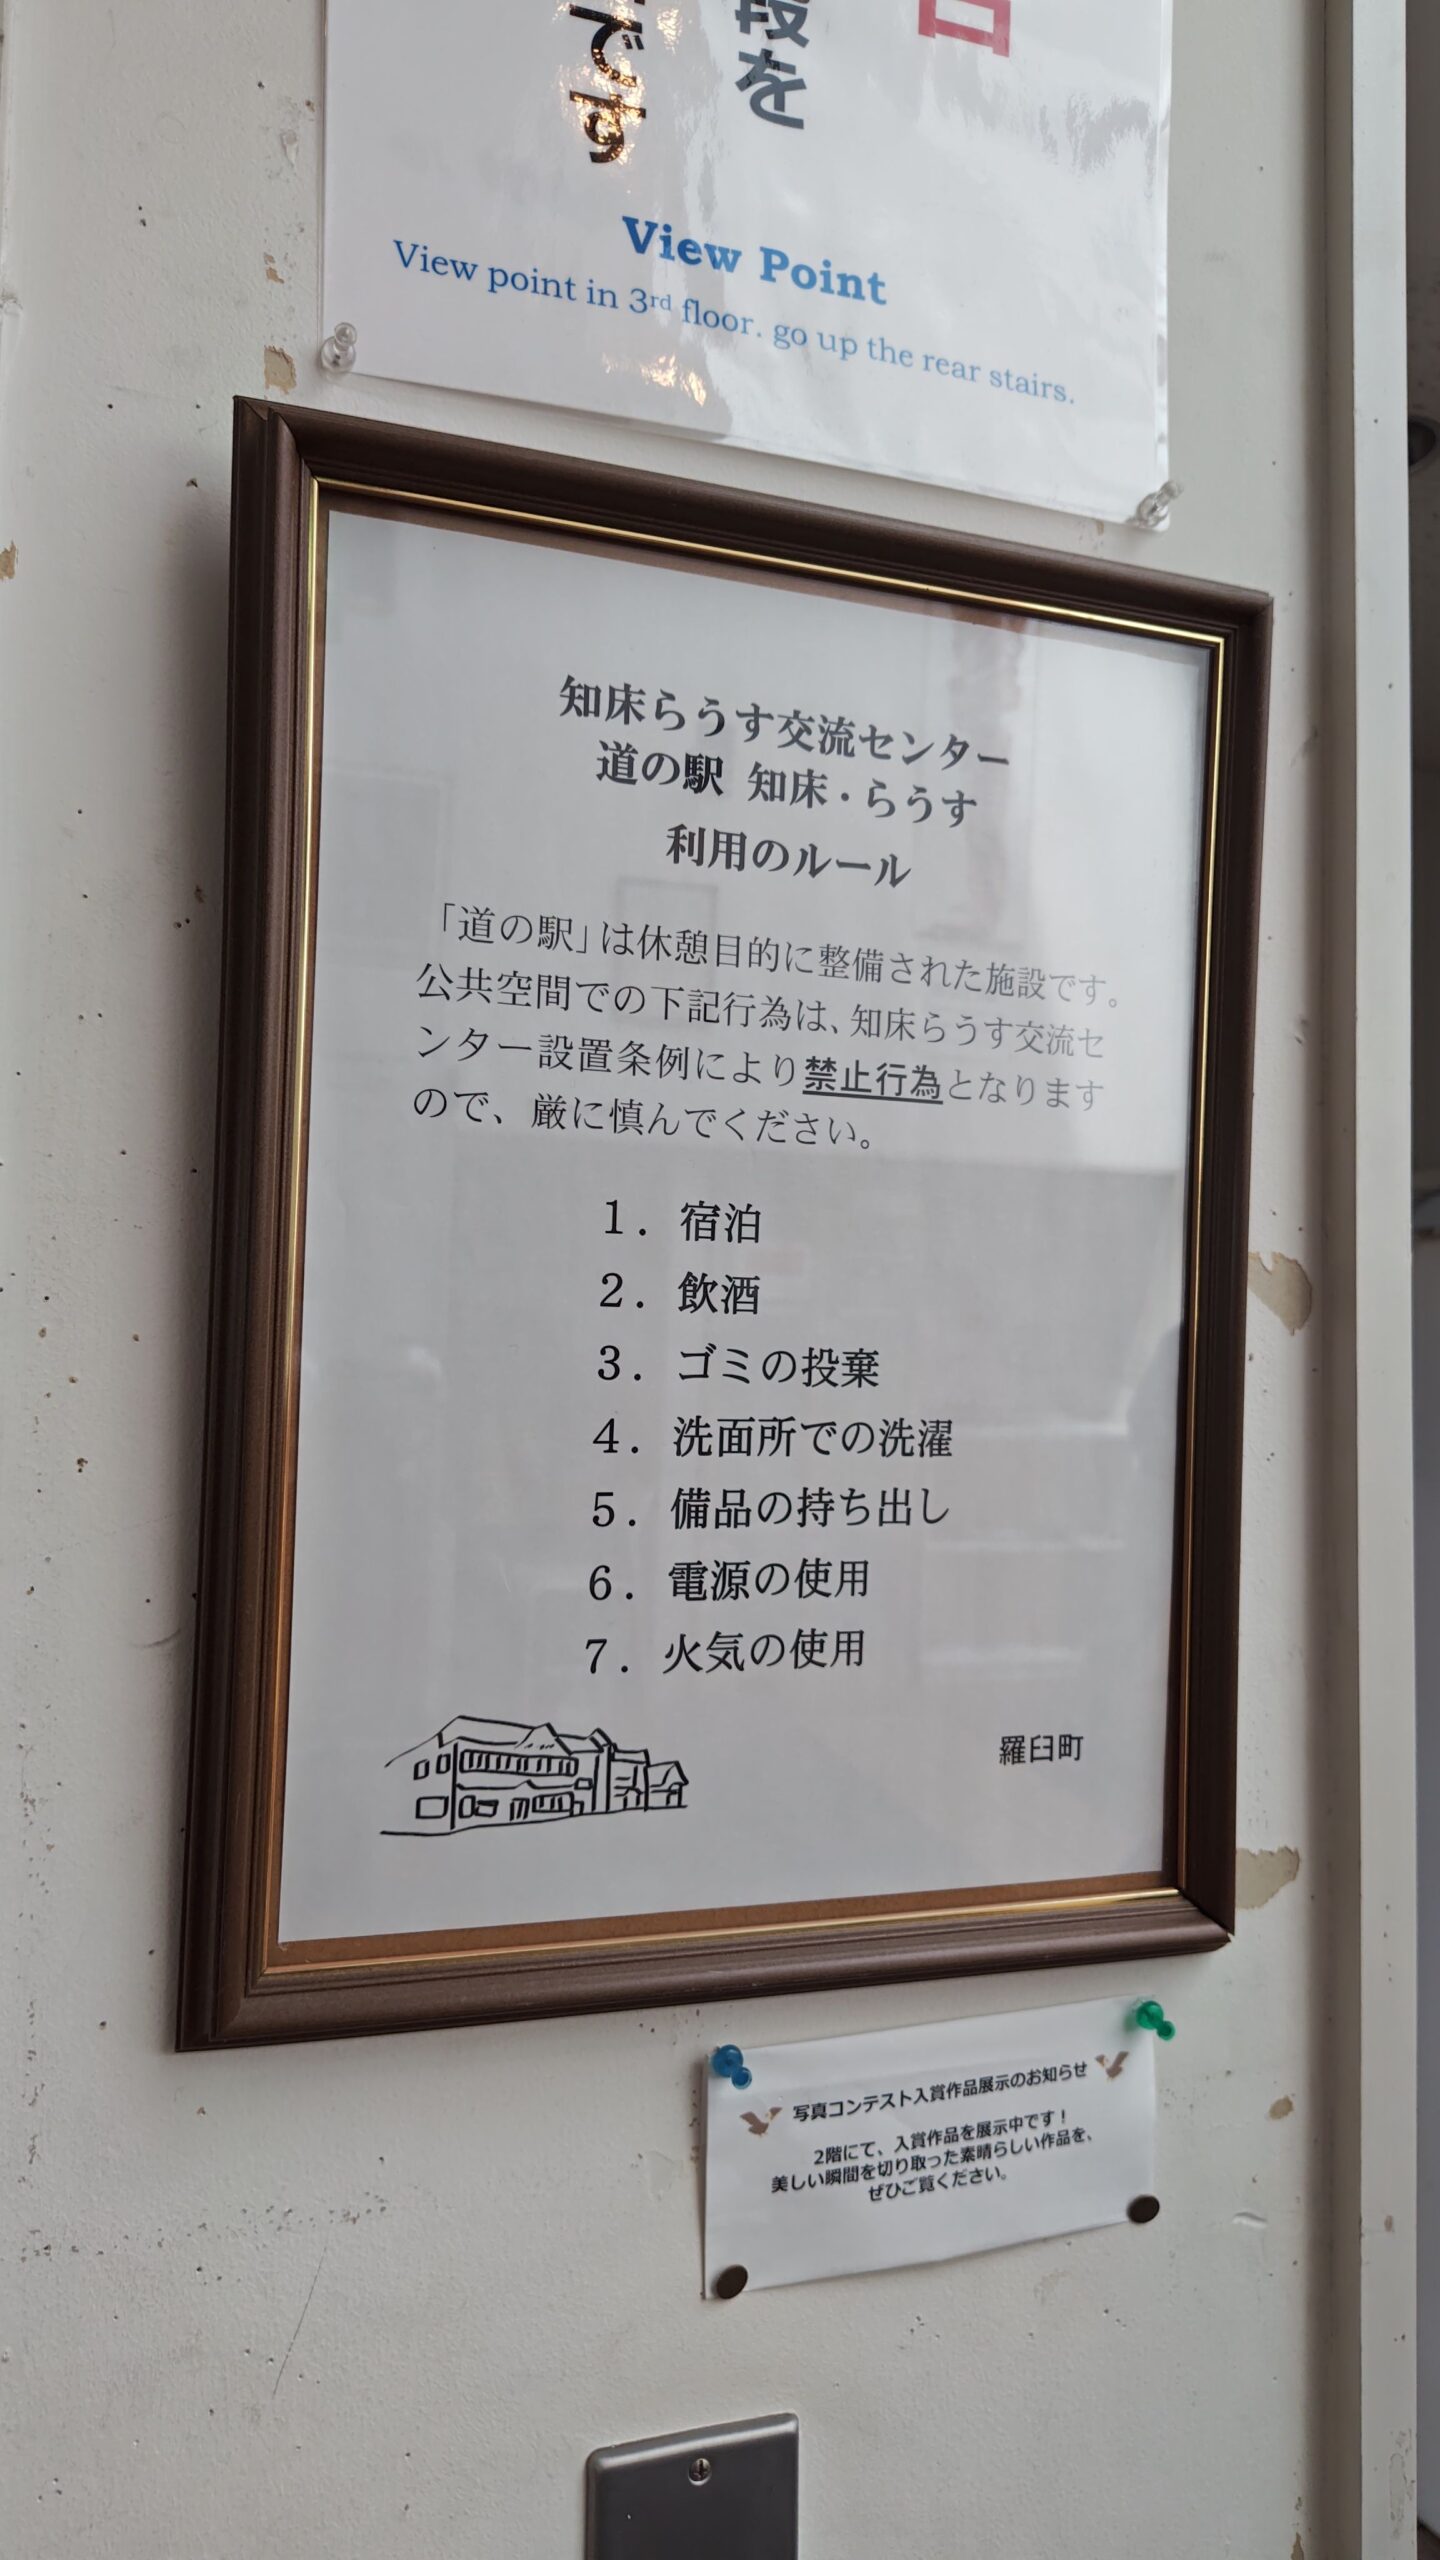 段を
です
View Point
View point in 3rd floor. go up the rear stairs.
知床らうす交流センター
道の駅 知床・らうす
利用のルール
「道の駅」は休憩目的に整備された施設です。
公共空間での下記行為は、知床らうす交流セ
ンター設置条例により禁止行為となります
ので、厳に慎んでください。
１．宿泊
２．飲酒
３．ゴミの投棄
４．洗面所での洗濯
５．備品の持ち出し
６．電源の使用
７．火気の使用
羅臼町
写真コンテスト入賞作品展示のお知らせ
2階にて、入賞作品を展示中です！
美しい瞬間を切り取った素晴らしい作品を、
ぜひご覧ください。